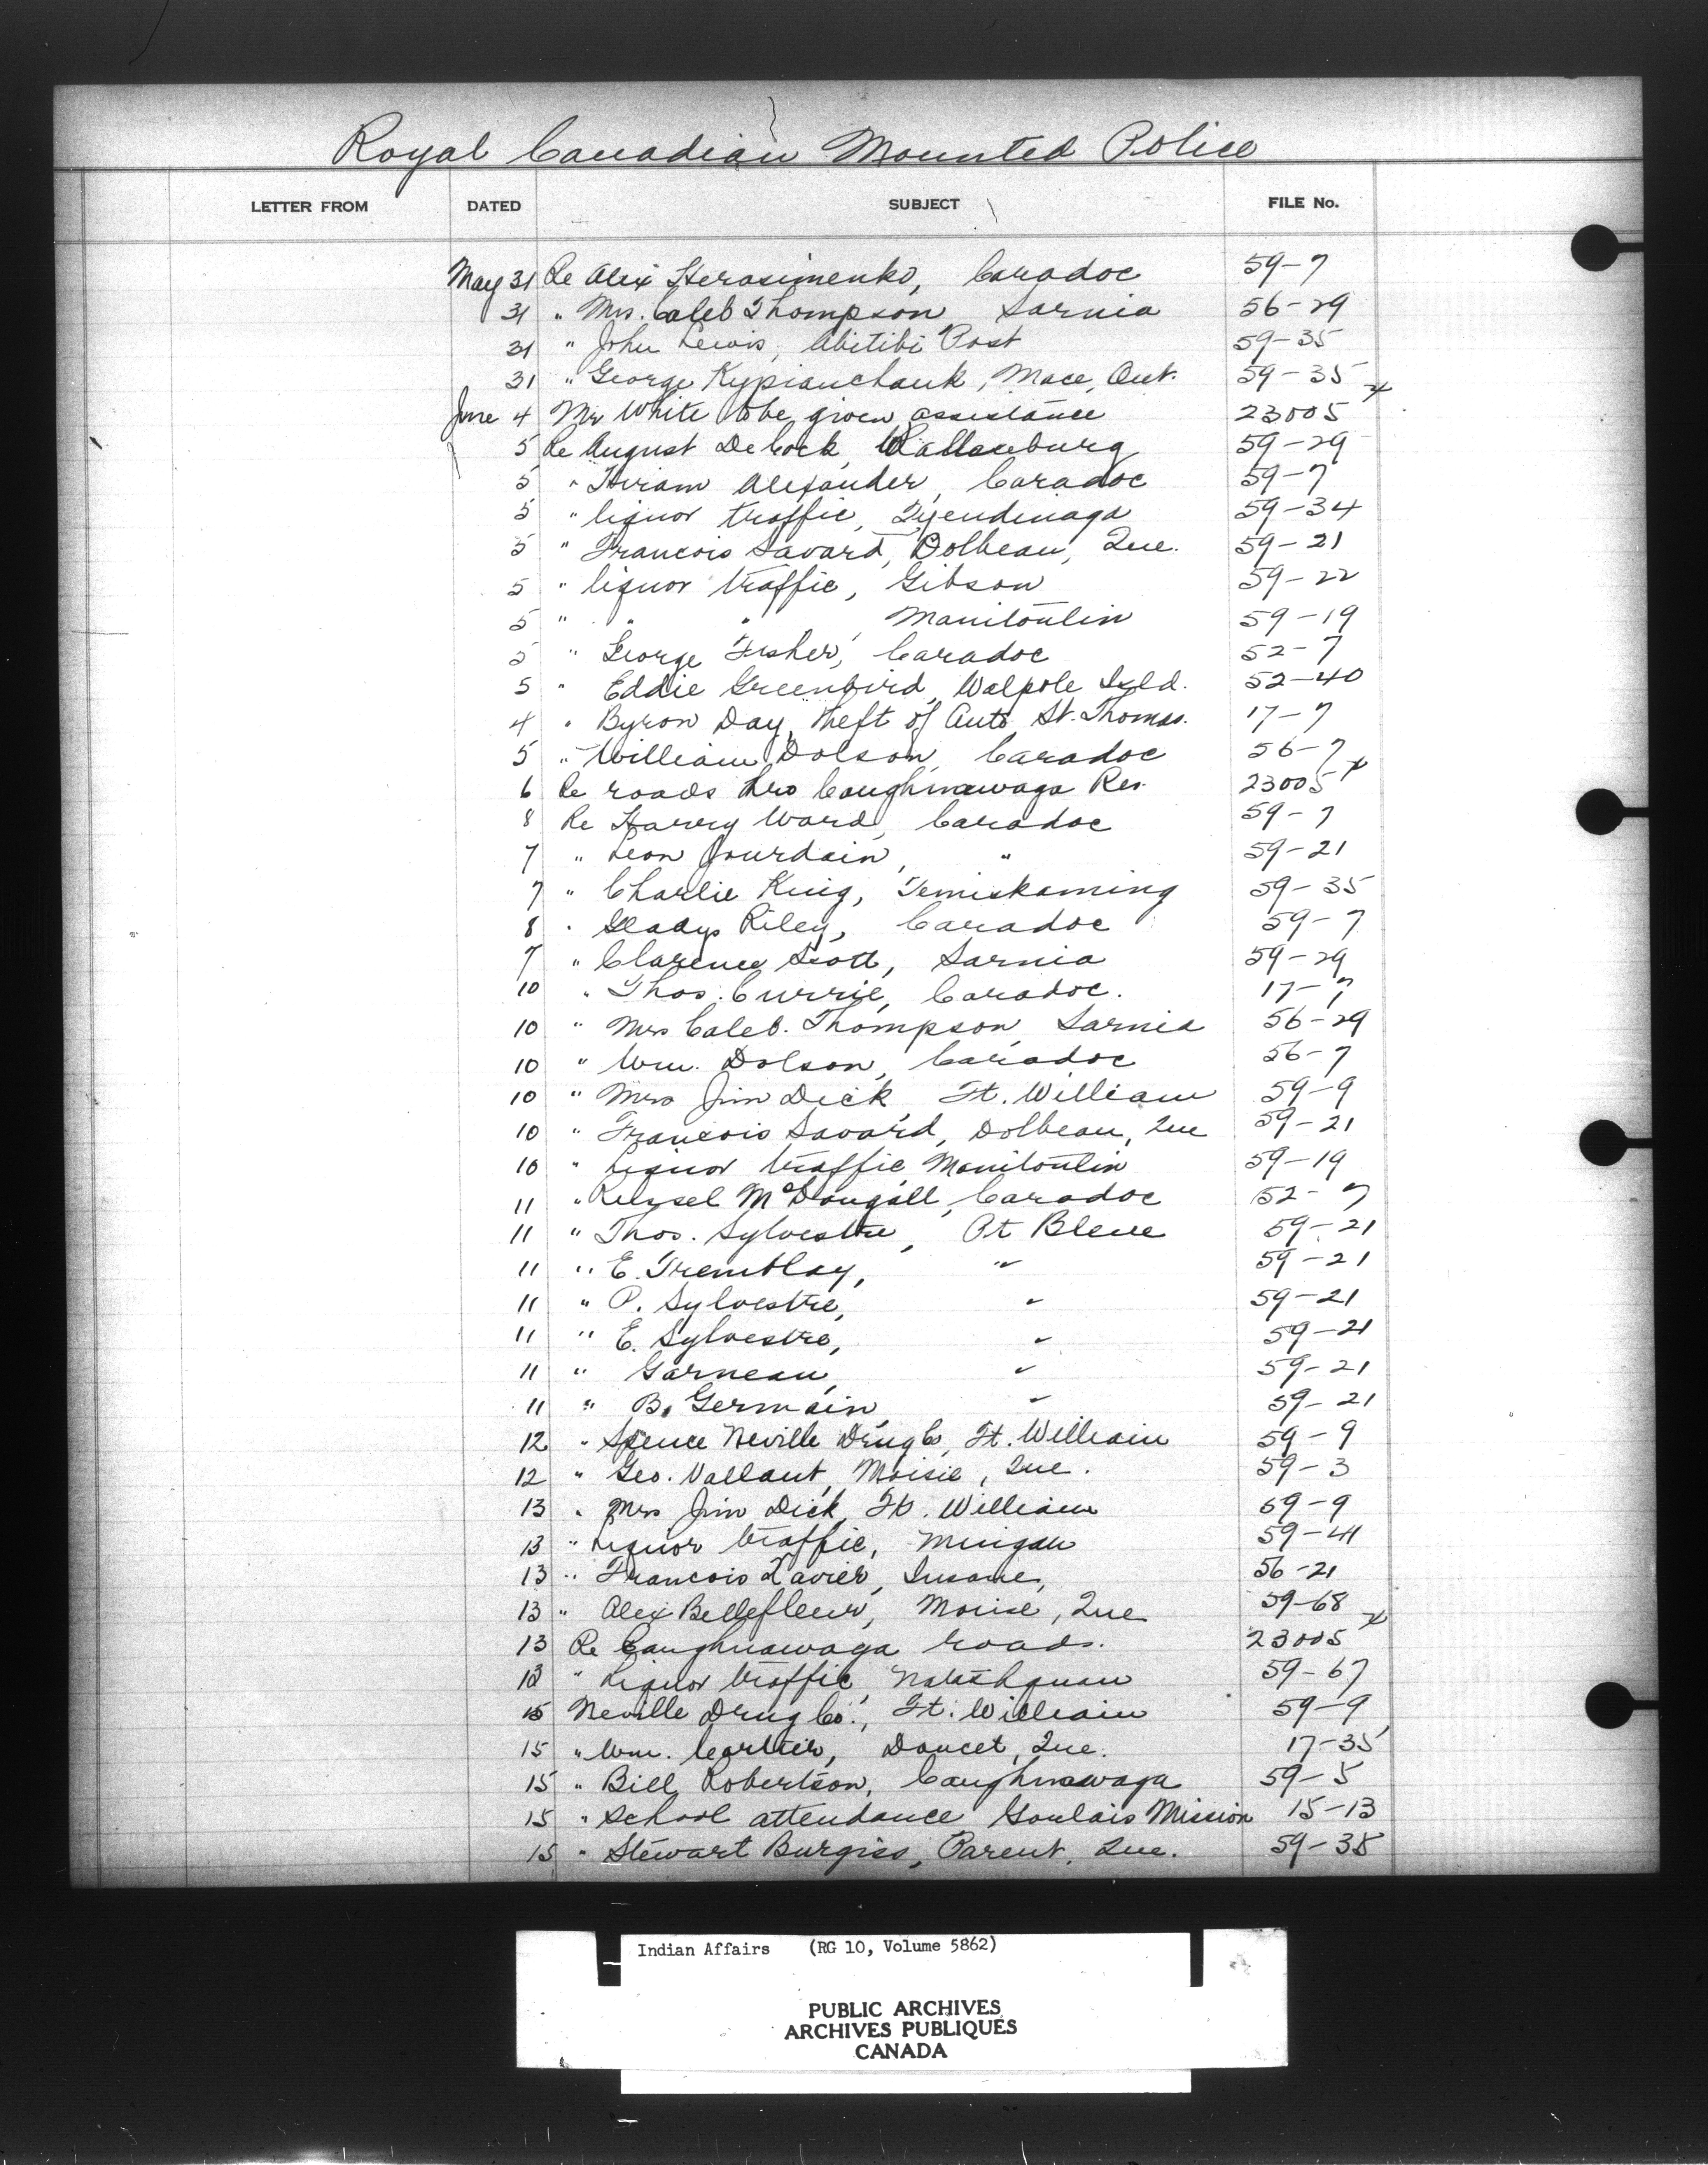 Royal Canadian Mounted Police
LETTER FROM DATED SUBJECT FILE No.
May 31 Re Alex Herasimenko, Caradoc 59-7
31 " Mrs. Caleb Thompson Sarnia 56-29
31 " John Lewis, Abitibi Post 59-35
31 " George Kypianchauk, Mace, Ont. 59-35
June 4 Mr White to be given assistance 23005 x
5 Re August DeCock, Wallaceburg 59-29
5 " Hiram Alexander, Caradoc 59-7
5 " liquor traffic, Tyendinaga 59-34
5 " Francois Savard, Dolbeau, Que. 59-21
5 " liquor traffic, Gibson 59-22
5 " " " , Manitoulin 59-19
5 " George Fisher, Caradoc 52-7
5 " Eddie Greenbird, Walpole Isld. 52-40
4 " Byron Day, theft of Auto St. Thomas. 17-7
5 " William Dolson, Caradoc 56-7
6 Re roads thro Caughnawaga Res. 23005 x
8 Re Harry Ward, Caradoc 59-7
7 " Leon Jourdain, " 59-21
7 " Charlie King, Temiskaming 59-35
8 " Gladys Riley, Caradoc 59-7
7 " Clarence Scott, Sarnia 59-29
10 " Thos. Currie, Caradoc. 17-7
10 " Mrs Caleb. Thompson, Sarnia 56-29
10 " Wm. Dolson, Caradoc 56-7
10 " Mrs Jim Dick, Ft. William 59-9
10 " Francois Savard, Dolbeau, Que 59-21
10 " Liquor traffic, Manitoulin 59-19
11 " Russel McDougall, Caradoc 52-7
11 " Thos. Sylvestre, Pt Bleue 59-21
11 " E. Tremblay, " 59-21
11 " P. Sylvestre, " 59-21
11 " E. Sylvestre, " 59-21
11 " Garneau, " 59-21
11 " B. Germain, " 59-21
12 " Spence Neville Drug Co, Ft. William 59-9
12 " Geo. Vallant, Moisie, Que. 59-3
13 " Mrs Jim Dick, Ft. William 59-9
13 " Liquor traffic, Mingan 59-41
13 " Francois Xavier, Insane, 56-21
13 " Alex Bellefleur, Moisie, Que 59-68
13 Re Caughnawaga roads. 23005 x
13 " Liquor traffic, Natashquan 59-67
15 Neville Drug Co., Ft. William 59-9
15 " Wm. Cartier, Doucet, Que. 17-35
15 " Bill Robertson, Caughnawaga 59-5
15 " School attendance, Goulais Mission 15-13
15 " Stewart Burgiss, Parent, Que. 59-35
Indian Affairs (RG 10, Volume 5862)
PUBLIC ARCHIVES
ARCHIVES PUBLIQUES
CANADA